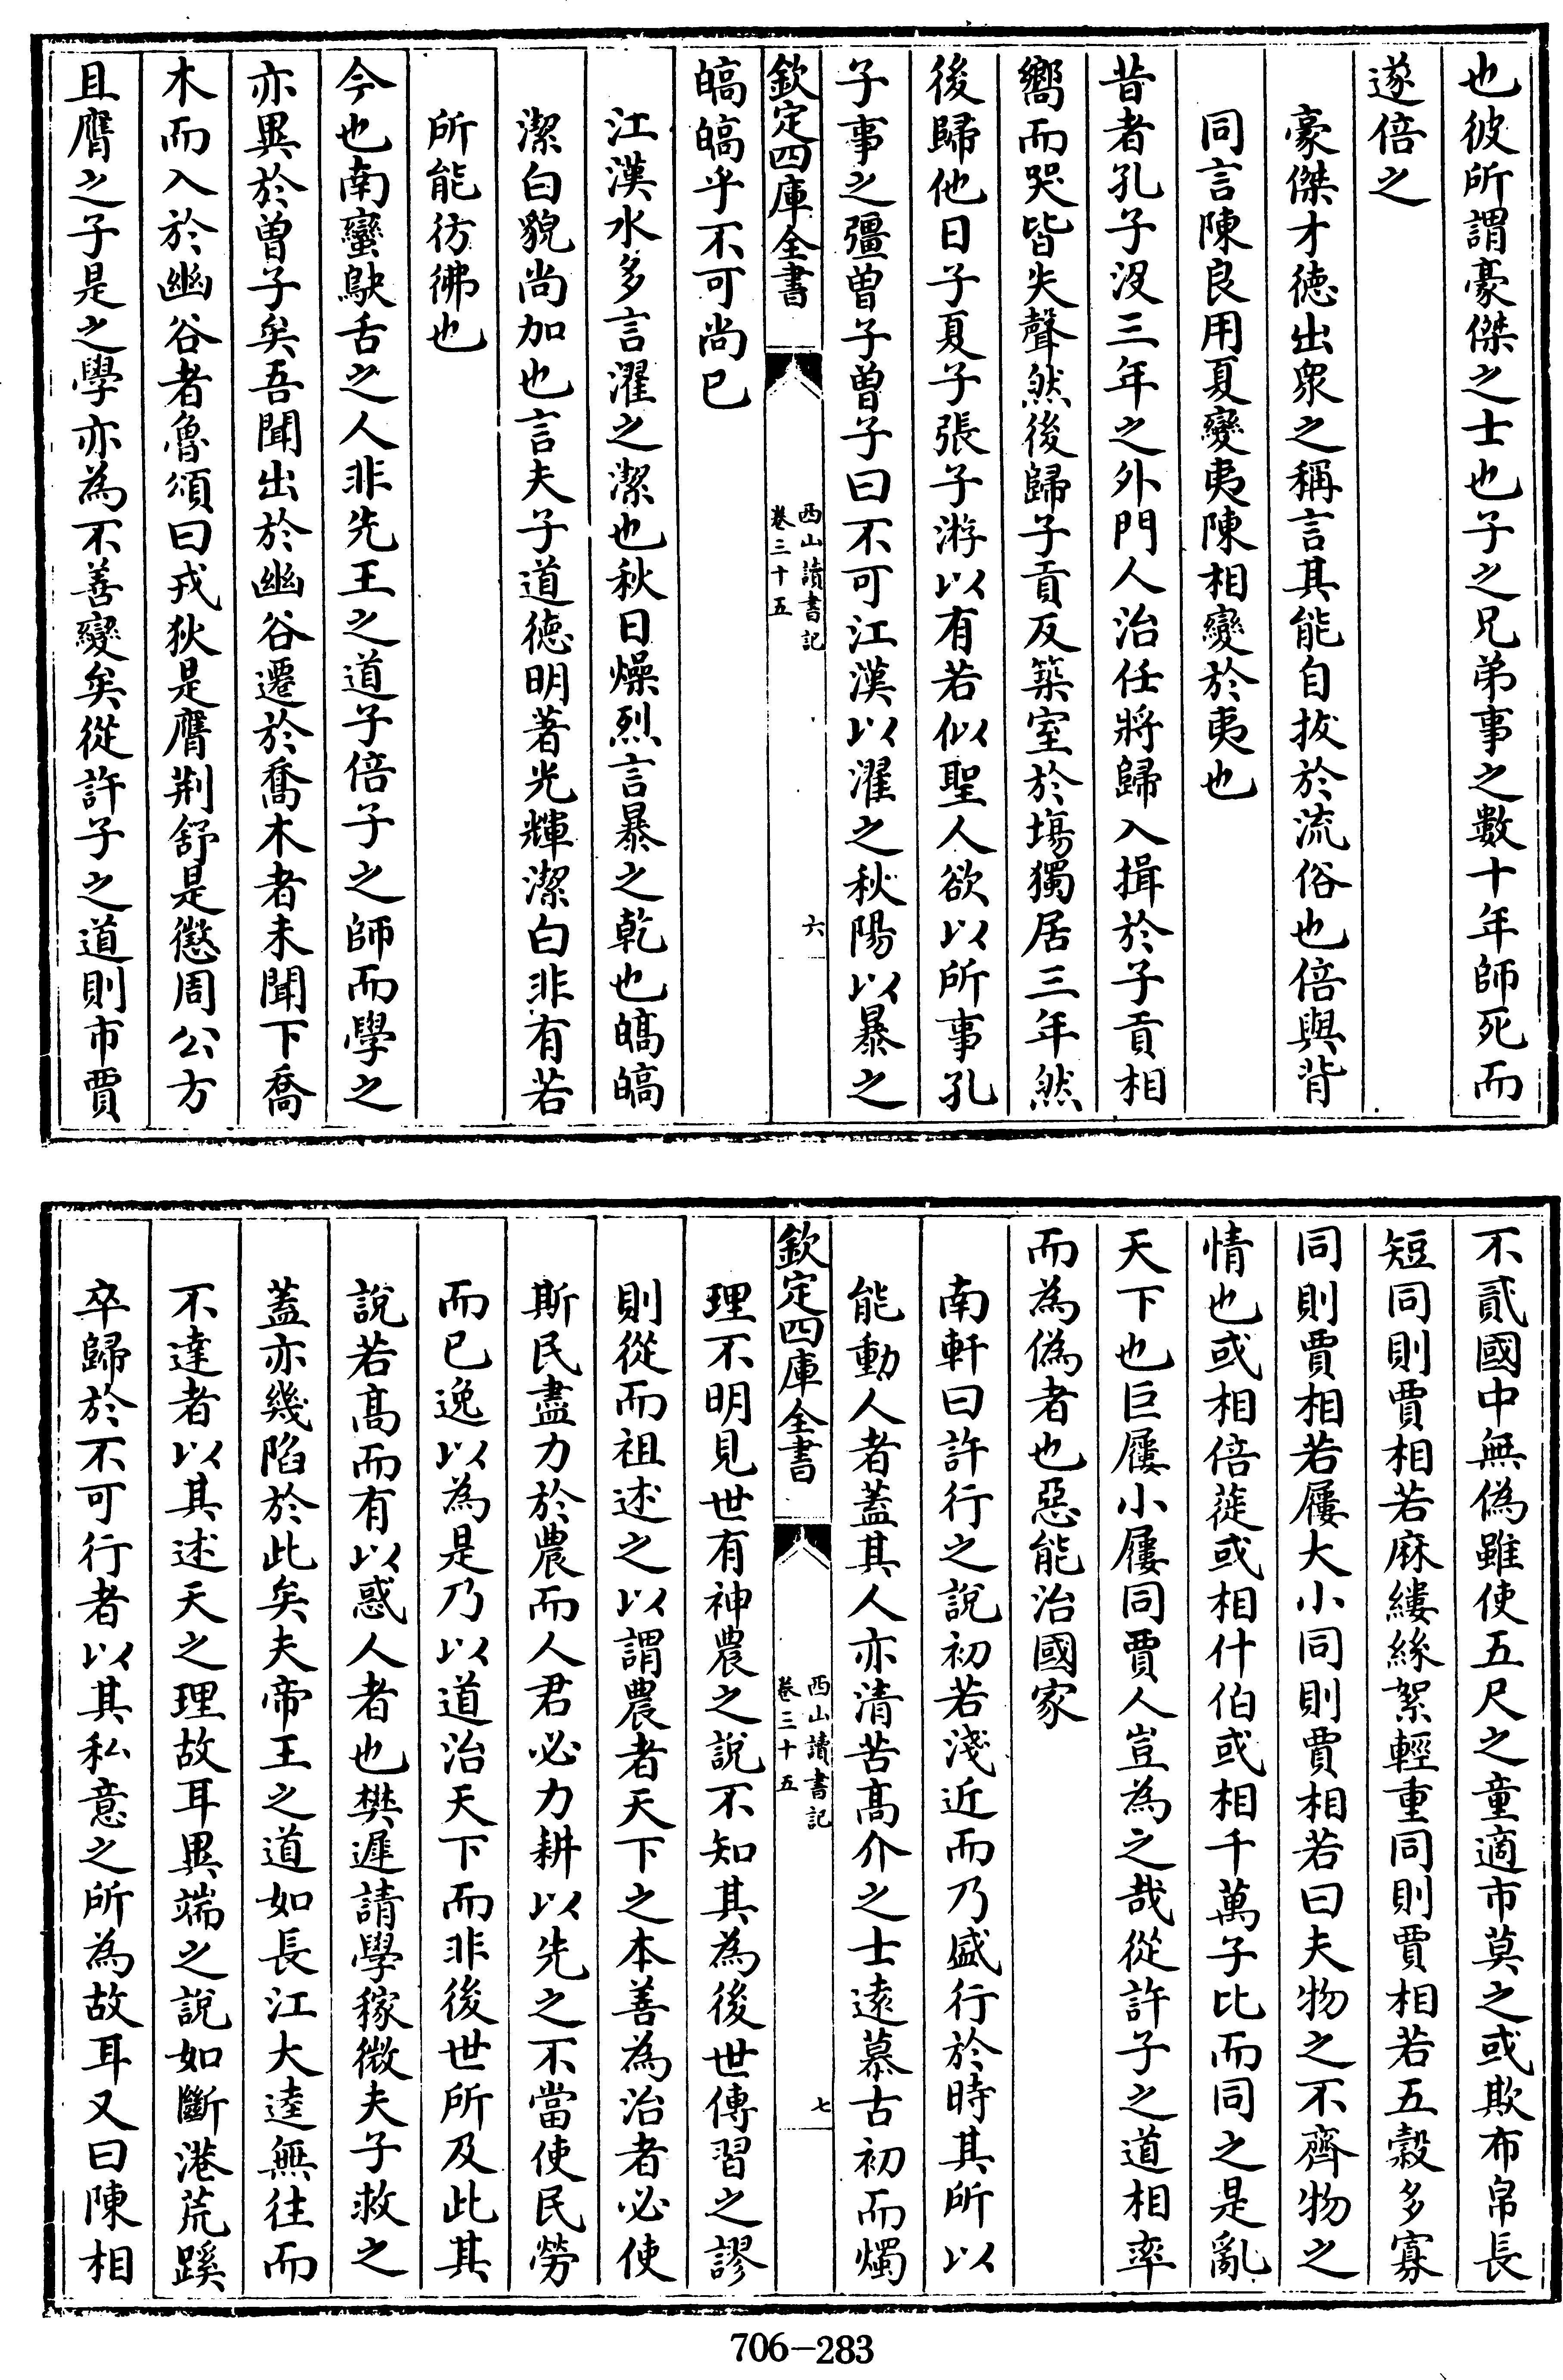 也彼所謂豪傑之士也子之兄弟事之數十年師死而
遂倍之
豪傑才徳出衆之稱言其能自拔於流俗也倍與背
同言陳良用夏變夷陳相變於夷也
昔者孔子沒三年之外門人治任將歸入揖於子貢相
嚮而哭皆失聲然後歸子貢反築室於塲獨居三年然
後歸他日子夏子張子游以有若似聖人欲以所事孔
子事之彊曾子曾子曰不可江漢以濯之秋陽以暴之
欽定四庫全書
西山讀書記
卷三十五
六
皜皜乎不可尚已
江漢水多言濯之潔也秋日燥烈言暴之乾也皜皜
潔白貌尚加也言夫子道徳明著光輝潔白非有若
所能彷彿也
今也南蠻鴃舌之人非先王之道子倍子之師而學之
亦異於曾子矣吾聞出於幽谷遷於喬木者未聞下喬
木而入於幽谷者魯頌曰戎狄是膺荆舒是懲周公方
且膺之子是之學亦為不善變矣從許子之道則市賈
不貳國中無偽雖使五尺之童適市莫之或欺布帛長
短同則賈相若麻縷絲絮輕重同則賈相若五穀多寡
同則賈相若屨大小同則賈相若曰夫物之不齊物之
情也或相倍蓰或相什伯或相千萬子比而同之是亂
天下也巨屨小屨同賈人豈為之哉從許子之道相率
而為偽者也惡能治國家
南軒曰許行之說初若淺近而乃盛行於時其所以
能動人者葢其人亦清苦髙介之士逺慕古初而燭
欽定四庫全書
西山讀書記
卷三十五
七
理不明見世有神農之說不知其為後世傳習之謬
則從而祖述之以謂農者天下之本善為治者必使
斯民盡力於農而人君必力耕以先之不當使民勞
而已逸以為是乃以道治天下而非後世所及此其
說若髙而有以惑人者也樊遲請學稼微夫子救之
葢亦幾陷於此矣夫帝王之道如長江大逵無往而
不達者以其述天之理故耳異端之說如斷港荒蹊
卒歸於不可行者以其私意之所為故耳又曰陳相
706-283